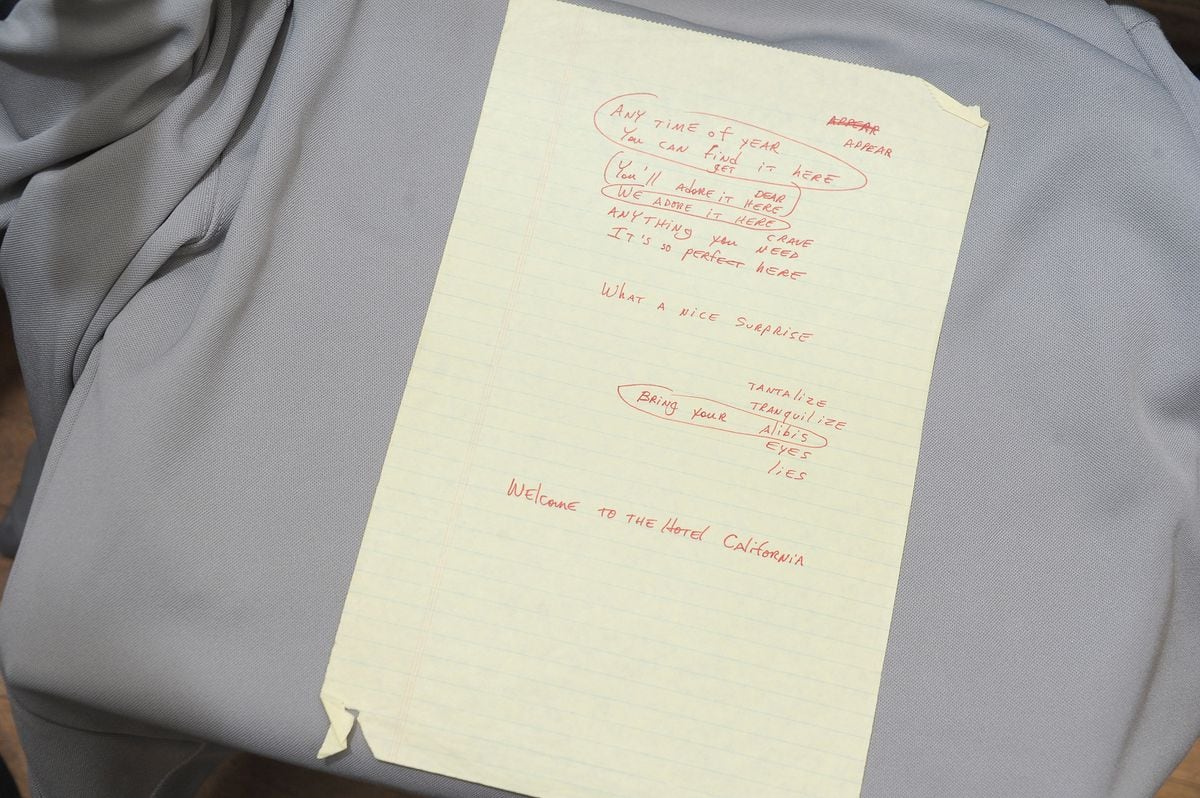 APPEAR
APPEAR
ANY TIME of YEAR
You CAN find IT HERE
GET
You'll ADORE IT HERE
DEAR
WE ADORE IT HERE
ANYTHING you NEED
CRAVE
IT'S SO PERFECT HERE
WHAT A NICE SURPRISE
TANTAlIZE
TRANQUIlIZE
BRING YOUR Alibis
EYES
lIES
WElcomE TO THE HOTEl CAlifORNIA